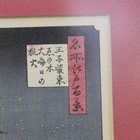 名所江戸百景
王子装束
ゑの木
大晦日の
狐火